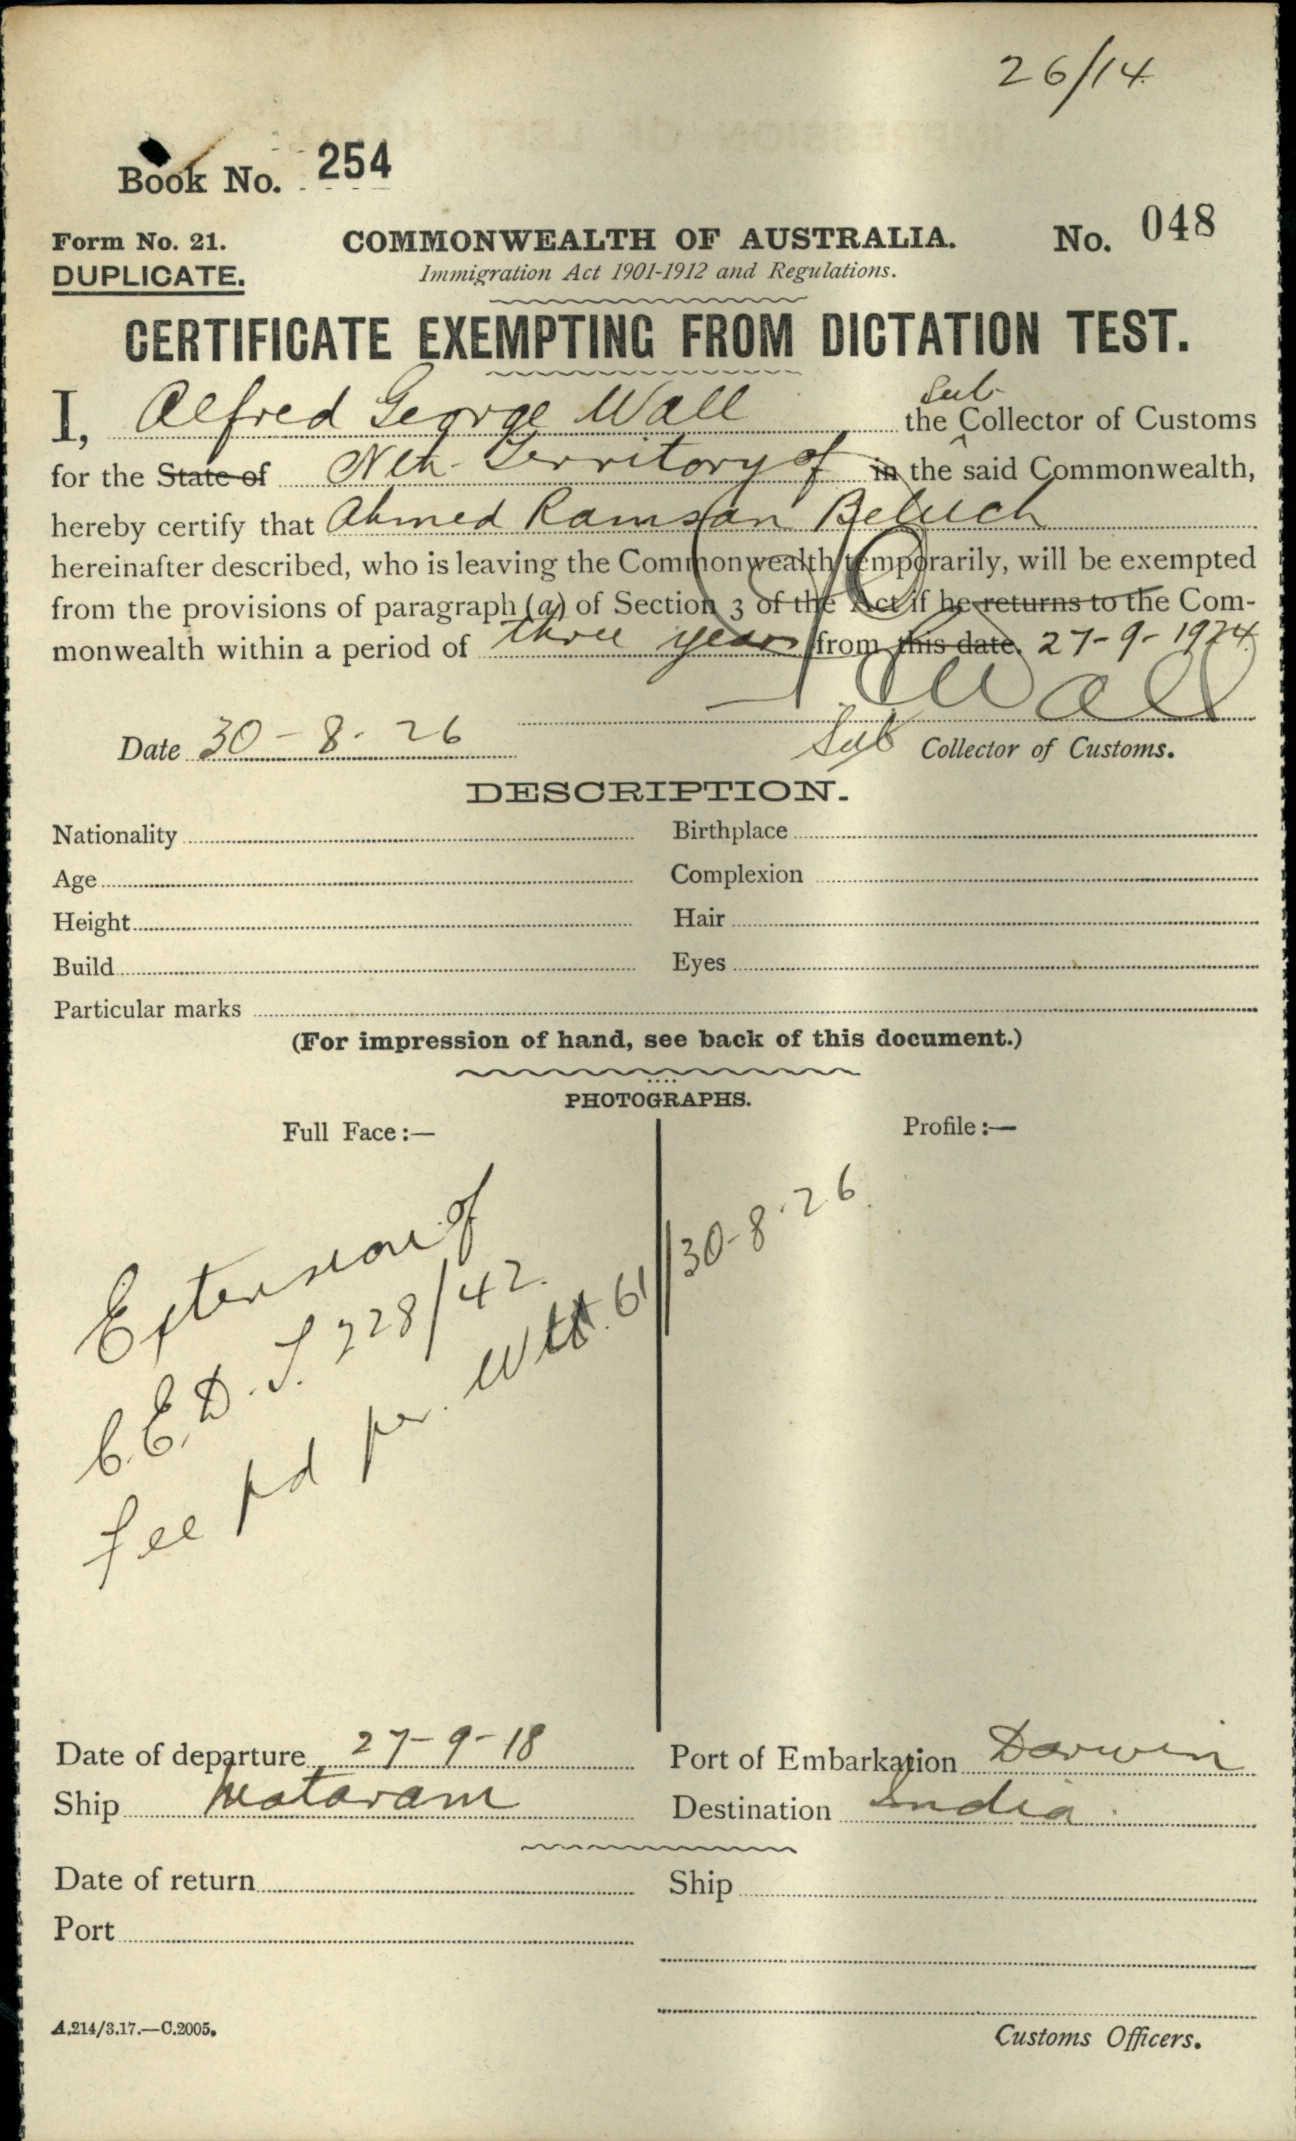 26/14
Book No. 254
Form No. 21. COMMONWEALTH OF AUSTRALIA. No. 048
DUPLICATE. Immigration Act 1901-1912 and Regulations.
CERTIFICATE EXEMPTING FROM DICTATION TEST.
Sub
I, Alfred George Wall the Collector of Customs
for the State of Nth. Territory of in the said Commonwealth,
hereby certify that Ahmed Ramsan Beluch
hereinafter described, who is leaving the Commonwealth temporarily, will be exempted
from the provisions of paragraph (a) of Section 3 of the Act if he returns to the Com-
monwealth within a period of three years from this date. 27-9-1924
Wall
Date 30-8-26 Sub Collector of Customs.
DESCRIPTION.
Nationality Birthplace
Age Complexion
Height Hair
Build Eyes
Particular marks
(For impression of hand, see back of this document.)
PHOTOGRAPHS.
Full Face:— Profile:—
Extension of
C.E.D.T. 228/42.
fee pd per 61//30-8-26.
Date of departure 27-9-18 Port of Embarkation Darwin
Ship Mataram Destination India.
Date of return Ship
Port
A.214/3.17.—C.2005.
Customs Officers.